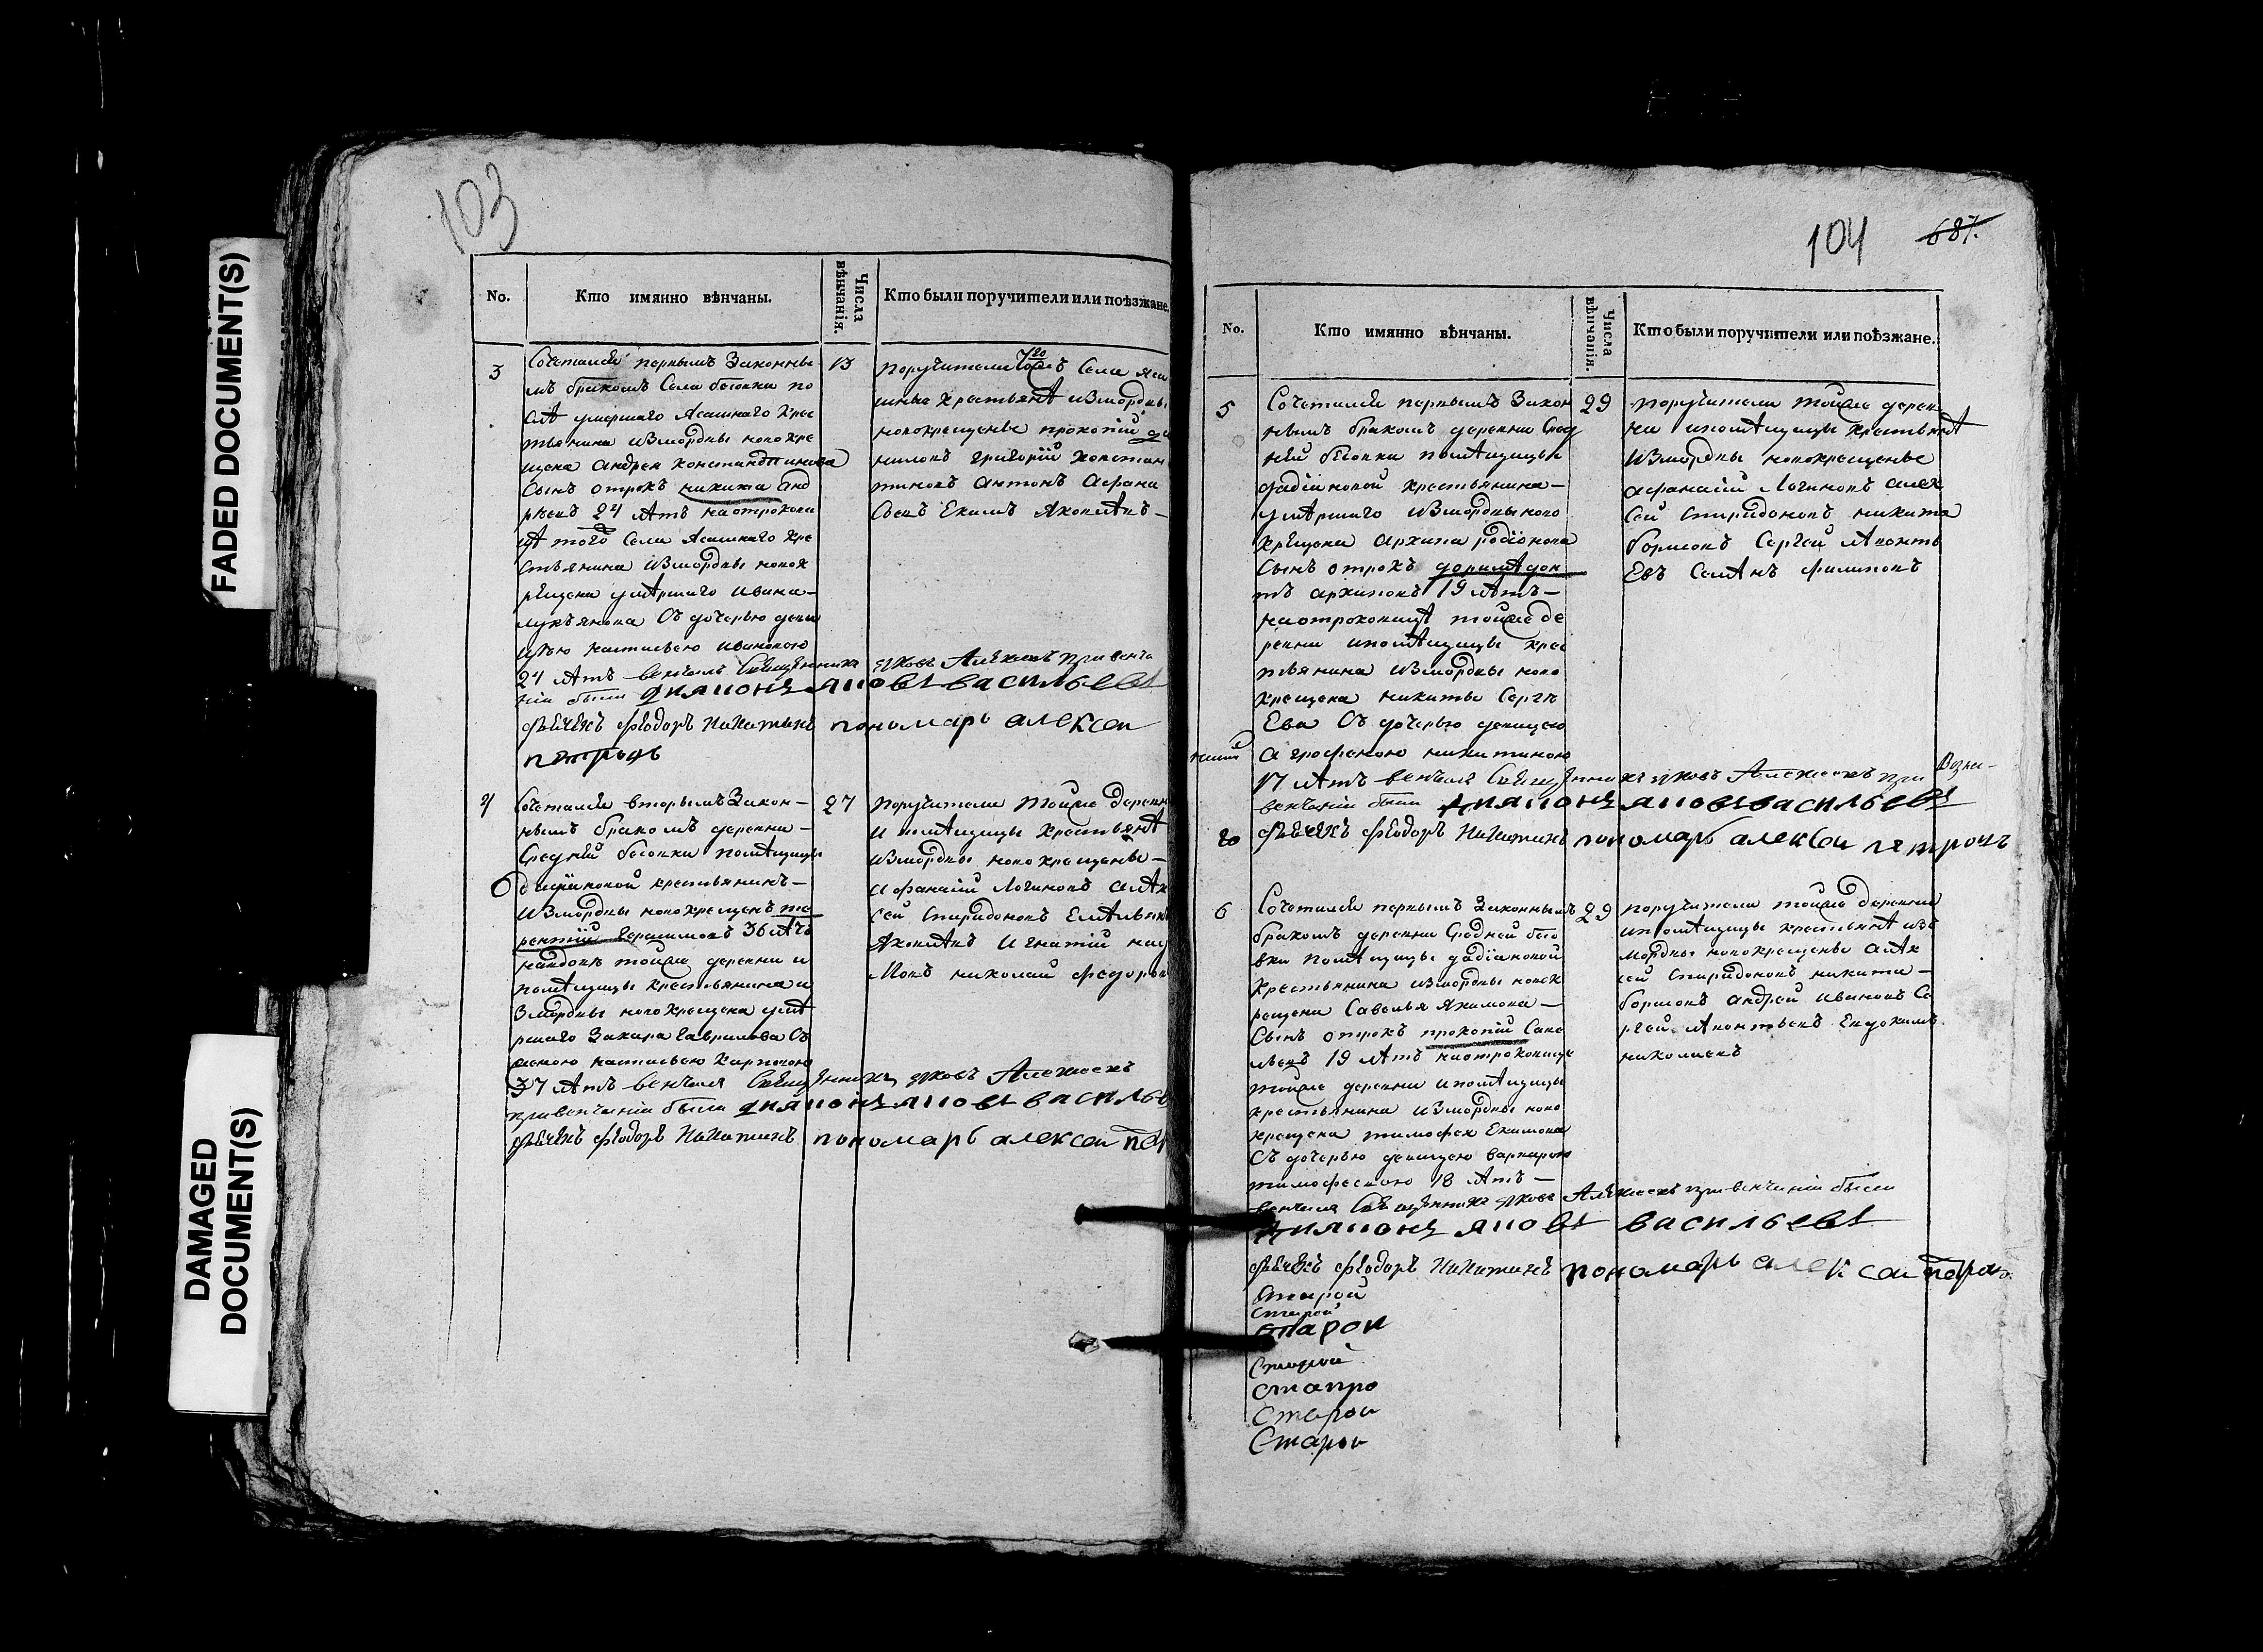 FADED DOCUMENT(S)
DAMAGED DOCUMENT(S)
103
No.
Кто имянно вѣнчаны.
Числа вѣнчанія.
Кто были поручители или поѣзжане.
3
Сочетались первымъ Законны
мъ бракомъ Села бѣговки по
слѣ умершаго Ясашнаго Крес
тьянина изъ мордвы новокре
щена Андрея константинова
Сынъ отрокъ никита анд
рѣевъ 24 лѣтъ на отрокови
цѣ того Села Ясашнаго кре
стьянина изъ мордвы новок
рещена умѣршаго ивана
лукъянова Съ дочерью деви
цею настасьею ивановою
24 лѣтъ венчалъ Священникъ Яковъ Алѣксеевъ при венча
ніи были дияконъ яковъ васильевъ
дьячекъ Феодоръ Никитинъ пономарь алексеи
петровъ
13
Поручители того Села яса
шные крестьянѣ изъ мордвы
новокрещеные прокопій да
ниловъ григорій констан
тиновъ антонъ афана
сьевъ Екимъ Яковлевъ
4
Сочетались вторымъ Закон
нымъ бракомъ деревни
Средней бѣговки помѣщицы
дадіяновой крестьянинъ
изъ мордвы новокрещенъ те
рентій Герасимовъ 36 лѣтъ
на вдовѣ тойже деревни и
помѣщицы крестьянина и
зъ мордвы новокрещена умѣ
ршаго Захара Гаврилова Съ
женою настасьею карповою
37 лѣтъ венчалъ Священникъ Яковъ Алексеевъ
при венчаніи были дияконъ яковъ василье
дьячекъ Феодоръ Никитинъ пономарь алексеи пет
27
Поручители Тойже деревни
и помѣщицы крестьянѣ
изъ мордвы новокрещеные
афанасій Логиновъ алѣк
сей Спиридоновъ Емѣльянъ
Яковлевъ игнатій нау
мовъ николай федоров
104
687.
No.
Кто имянно вѣнчаны.
Числа вѣнчанія.
Кто были поручители или поѣзжане.
5
Сочетались первымъ Закон
нымъ бракомъ деревни Сред
ней бѣговки помѣщицы
дадіяновой крестьянина
умѣршаго изъ мордвы ново
крещена архипа родіонова
Сынъ отрокъ доримѣдон
тъ архиповъ 19 лѣтъ
на отроковицѣ тойже де
ревни и помѣщицы крес
тьянина изъ мордвы ново
крещена никиты Сергѣ
Ева Съ дочерью девицею
агрофеною никитиною
17 лѣтъ венчалъ Священникъ Яковъ Алексеевъ при
венчаніи были дияконъ яковъ васильевъ
дьячекъ Феодоръ Никитинъ пономарь алексеи петровъ
29
Поручители тойже дерев
ни и помѣщицы крестьянѣ
изъ мордвы новокрещеные
афанасій Логиновъ алек
сей Спиридоновъ никита
борисовъ Сергей Лѣонть
Евъ Семѣнъ филиповъ
6
Сочетались первымъ Законнымъ
бракомъ деревни Средней бего
вки помѣщицы дадіяновой
крестьянина изъ мордвы новок
рещена Савелья Якимова
Сынъ отрокъ прокопій Саве
льевъ 19 лѣтъ на отроковице
тойже деревни и помѣщицы
крестьянина изъ мордвы ново
крещена тимофея Екимова
Съ дочерью девицею варварою
тимофеевою 18 лѣтъ
венчалъ Священникъ Яковъ Алѣксеевъ при венчаніи были
дияконъ яковъ васильевъ
дьячекъ Феодоръ Никитинъ пономарь алексеи петровъ
29
Поручители тойже деревни
и помѣщицы крестьянѣ изъ
мордвы новокрещеные алѣк
сей Спиридоновъ никита
борисовъ андрей ивановъ Се
ргей лѣонтьевъ Евдокимъ
николаевъ
Старой
старой
старои
Старой
стапро
Старои
Старои